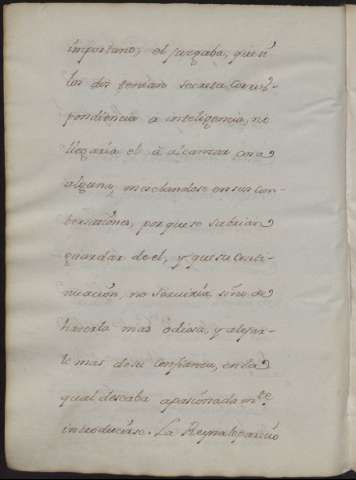 importuno, el juzgaba, que si
los dos tenian secreta corres-
pondiencia a inteligencia, no
llegaria el à alcanzar cosa
alguna, mesclandose en sus con-
bersaciones, porque se sabrian
guardar de el, y que su conti-
nuación, no serviria sino de
hacerle mas odioso, y alejar-
le mas de su confianza, en la
qual deseaba apasionada mte
introducirse. La Reyna le pareció